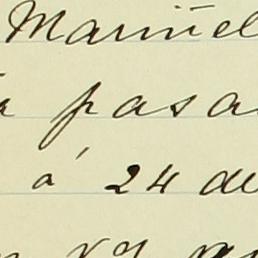 Manuel
pasa
á 24 de